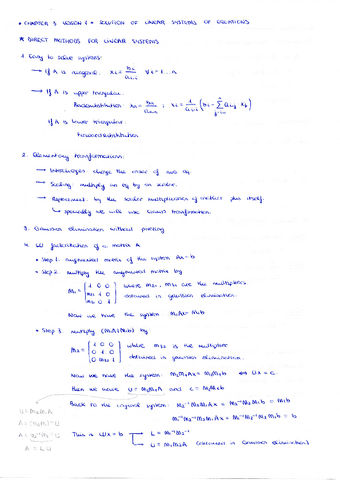 • CHAPTER 3 LESSON 1 • SOLUTION OF LINEAR SYSTEMS OF EQUATIONS
* DIRECT METHODS FOR LINEAR SYSTEMS
1. Easy to solve systems:
→ If A is diagonal: xi = bi/ai,i ∀i = 1...n
→ If A is upper triangular:
Backsubstitution: xn = bn/an,n ; xi = 1/ai,i (bi - Σ ai,j xj)
If A is lower triangular:
Forward substitution
2. Elementary transformations:
→ Interchanges: change the order of two eq.
→ Scaling: multiply an eq by an scalar.
→ Replacement: by the scalar multiplication of another plus itself.
↳ specially we will use Gauss transformation.
3. Gaussian elimination without pivoting
4. LU factorization of a matrix A
• Step 1: augmented matrix of the system Ax = b
• Step 2: multiply the augmented matrix by
M1 = [1 0 0
m21 1 0
m31 0 1] where m21, m31 are the multipliers
obtained in gaussian elimination.
Now we have the system M1Ax = M1b
• Step 3: multiply (M1A|M1b) by
M2 = [1 0 0
0 1 0
0 m32 1] where m32 is the multiplier
obtained in gaussian elimination.
Now we have the system M2M1Ax = M2M1b ⇔ Ux = c
then we have U = M2M1A and c = M2M1b
Back to the original system: M2⁻¹M2M1Ax = M2⁻¹M2M1b = M1b
M1⁻¹M2⁻¹M2M1Ax = M1⁻¹M2⁻¹M2M1b = b
U = M2M1A
A = (M2M1)⁻¹U
A = M1⁻¹M2⁻¹U
A = LU
This is LUx = b → L = M1⁻¹M2⁻¹
→ U = M2M1A (obtained in Gaussian elimination)